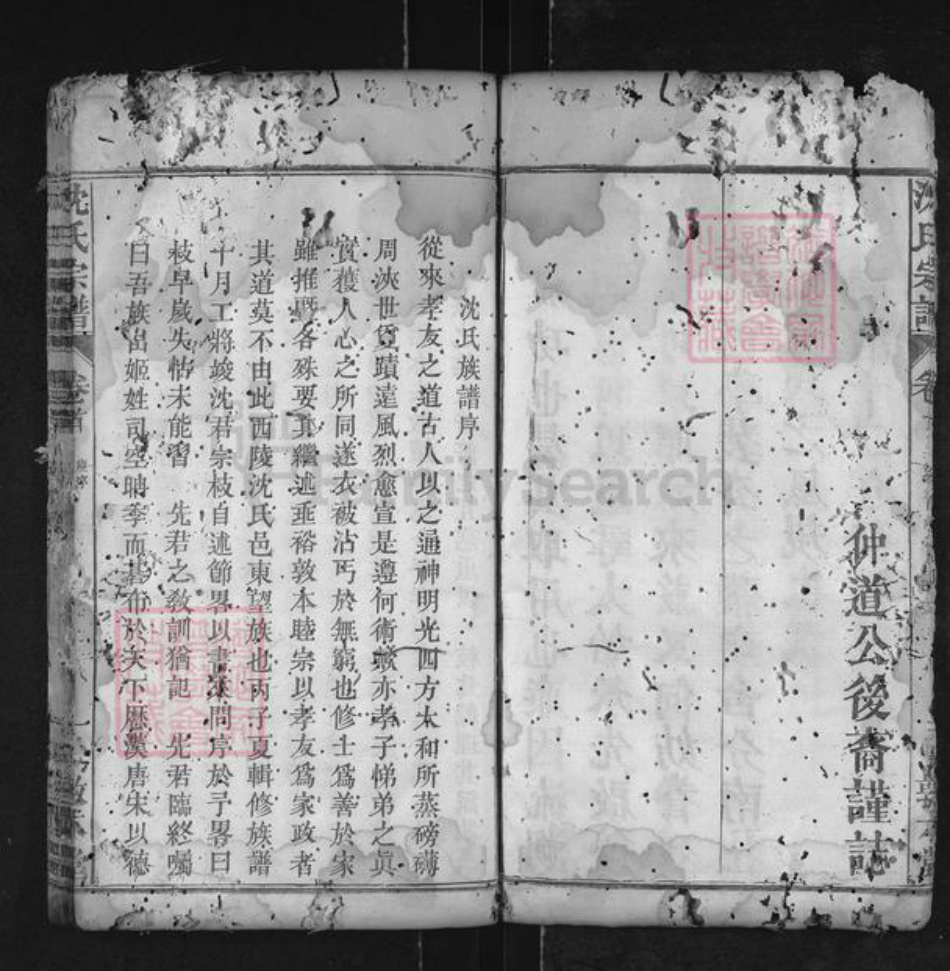 仲道公後裔謹誌
沈氏族譜序
從來孝友之道古人以之通神明光四方太和所蒸磅礴
周浹世實蹟遠風烈愈宣是遵何術歟亦孝子悌弟之眞
實獲人心之所同遂衣被沾丐於無窮也修士爲善於家
雖推曁各殊要其繼述垂裕敦本睦宗以孝友爲家政者
其道莫不由此西陵沈氏邑東望族也丙子夏輯修族譜
十月工將竣沈君宗枝自述節畧以書來問序於予畧曰
枝早歲失怙未能習 先君之敎訓猶記 先君臨終囑
曰吾族出姬姓司空聃季而基布於天下歷漢唐宋以德
沈氏宗譜
卷首
沈氏宗譜
卷
FamilySearch